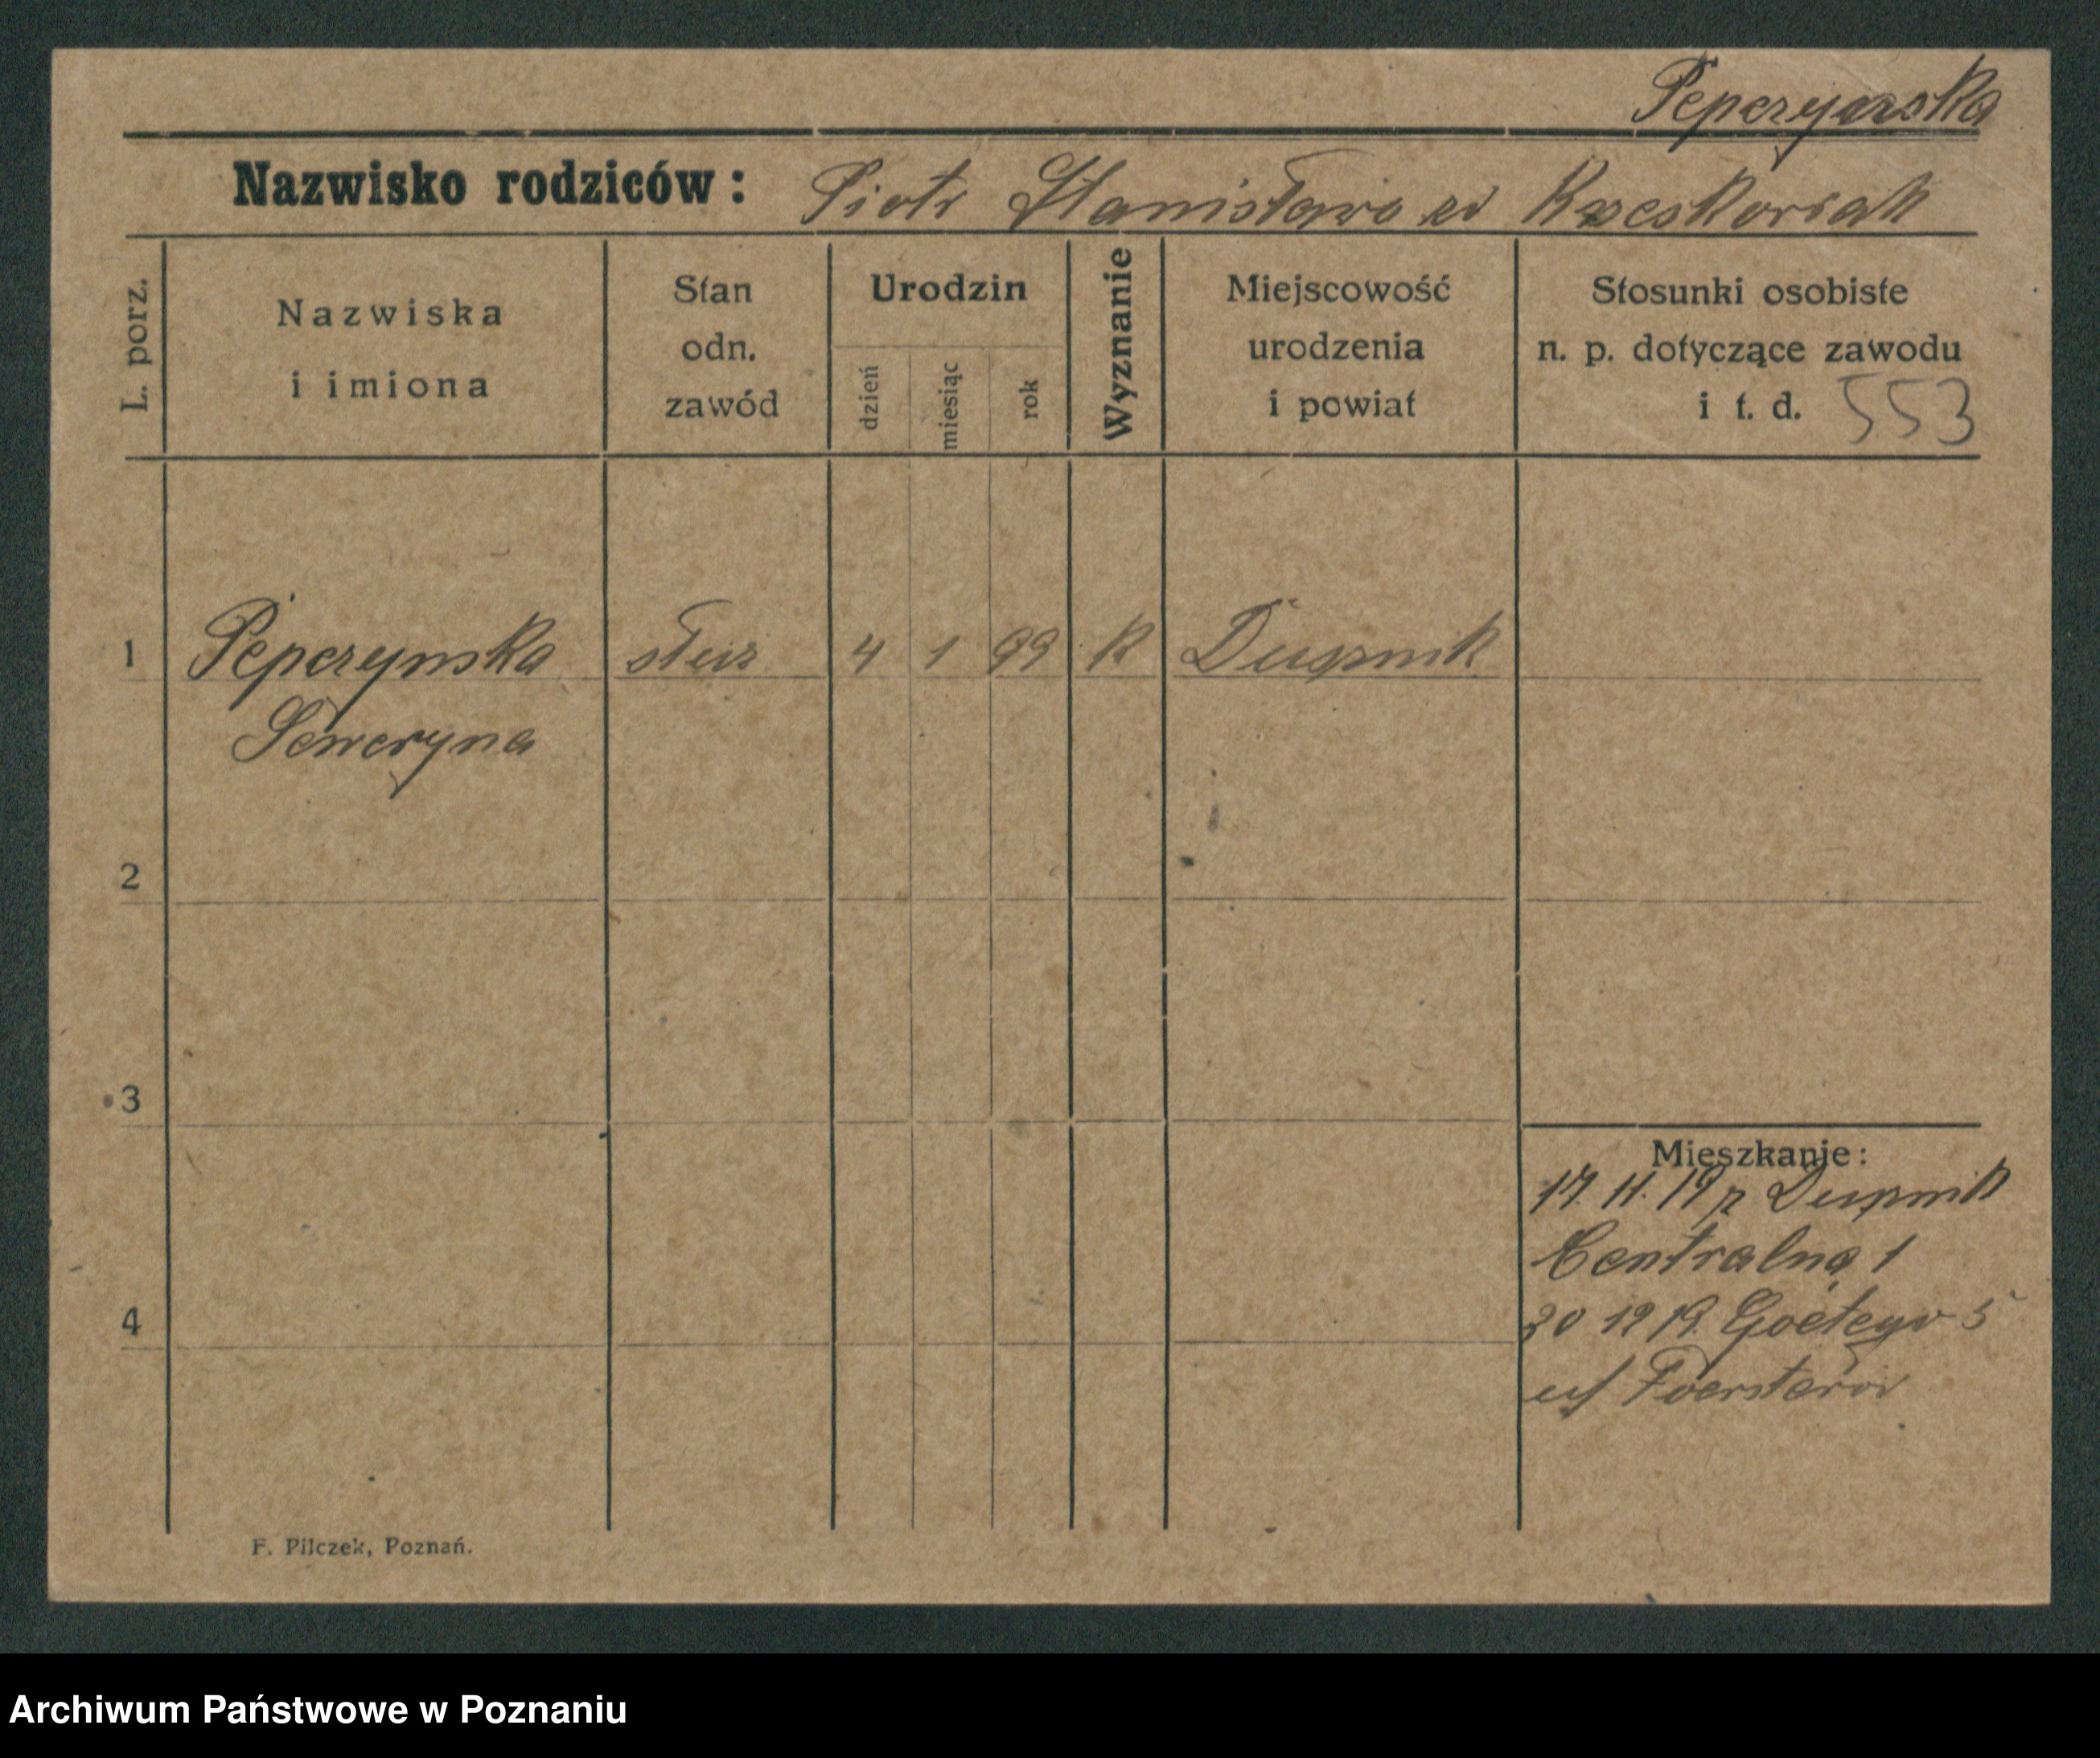 Peperzynska
Nazwisko rodziców: Piotr Stanisława zd Krzeskoviak
L. porz.
Nazwiska
i imiona
Stan
odn.
zawód
Urodzin
dzień
miesiąc
rok
Wyznanie
Miejscowość
urodzenia
i powiat
Stosunki osobiste
n. p. dotyczące zawodu
i t. d. 553
1 Peperzynska służ 4 1 99 K Dusznik
Seweryna
2
3
4
Mieszkanie:
17. 11. 19 z Dusznik
Centralna 1
30 12 19. Goetego 5
u/
F. Pilczek, Poznań.
Archiwum Państwowe w Poznaniu